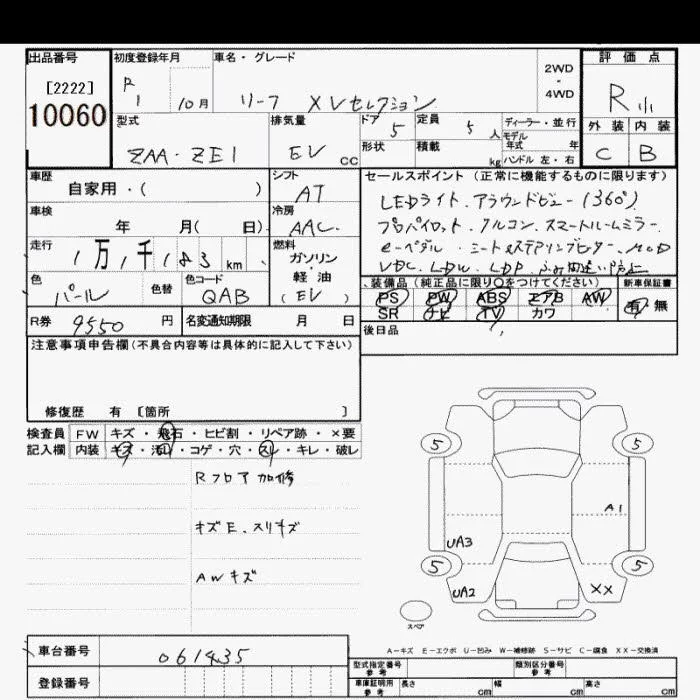 出品番号
[2222]
10060
初度登録年月
R 1 10月
車名・グレード
リーフ XVセレクション
2WD
・
4WD
評価点
R
外装 内装
C B
型式
ZAA-ZE1
排気量
EV CC
ドア 5
定員 5 人
ディーラー・並行
モデル
年式 年
形状
積載 kg
ハンドル 左・右
車歴
自家用・( )
シフト
AT
セールスポイント (正常に機能するものに限ります)
LEDライト、アラウンドビュー(360°)
プロパイロット、アルコン、スマートルームミラー
e-ペダル、シート&ステアリングヒーター、MOD
VDC、LDW、LDP、ふみ間違い防止
車検
年 月( 日)
冷房
AAC
走行
1万1千183km
燃料
ガソリン
・
軽油
(EV)
色
パール
色替
色コード
QAB
装備品(純正品に限り○をつけてください)
新車保証書
PS PW ABS エアB AW
有・無
SR ナビ TV カワ
R券 9550 円
名変通知期限 月 日
後日品
注意事項申告欄(不具合内容等は具体的に記入して下さい)
修復歴 有 [箇所 ]
検査員
記入欄
FW キズ・飛石・ヒビ割・リペア跡・×要
内装 キズ・汚れ・コゲ・穴・スレ・キレ・破レ
Rフロア加修
キズE、スリキズ
AWキズ
5 5
A1
UA3
5 5
UA2 XX
スペア
A-キズ E-エクボ U-凹み W-補修跡 S-サビ C-腐食 XX-交換済
車台番号 061435
登録番号
型式指定番号
参考
類別区分番号
参考
車庫証明用
参考
長さ cm 幅 cm 高さ cm